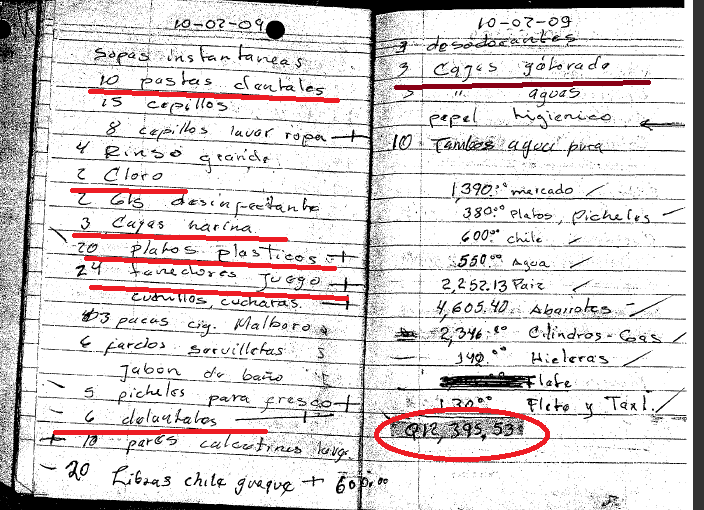 10-02-09
sopas instantaneas
10 pastas dentales
15 cepillos
8 cepillos lavar ropa +
4 Rinso grande
2 Cloro
2 Gls desinfectante
3 Cajas harina
20 platos plasticos +
24 tenedores juego +
cuchillos, cucharas +
3 pacas cig. Malboro
6 fardos servilletas
Jabon de baño
5 picheles para fresco +
- 6 delantales +
+ 10 pares calcetines
- 20 Libras chile guaque + 600.00
10-02-09
3 desodorantes
3 Cajas gatorade
3 " aguas
papel higienico
10 Tambos agua pura
1,390.00 mercado
380.00 Platos, Picheles
600.00 chile
550.00 Agua
2,252.13 Paiz
4,605.40 Abarrotes
2,346.00 Cilindros-Gas
142.00 Hieleras
Flete
130.00 Flete y Taxi.
Q12,395.53